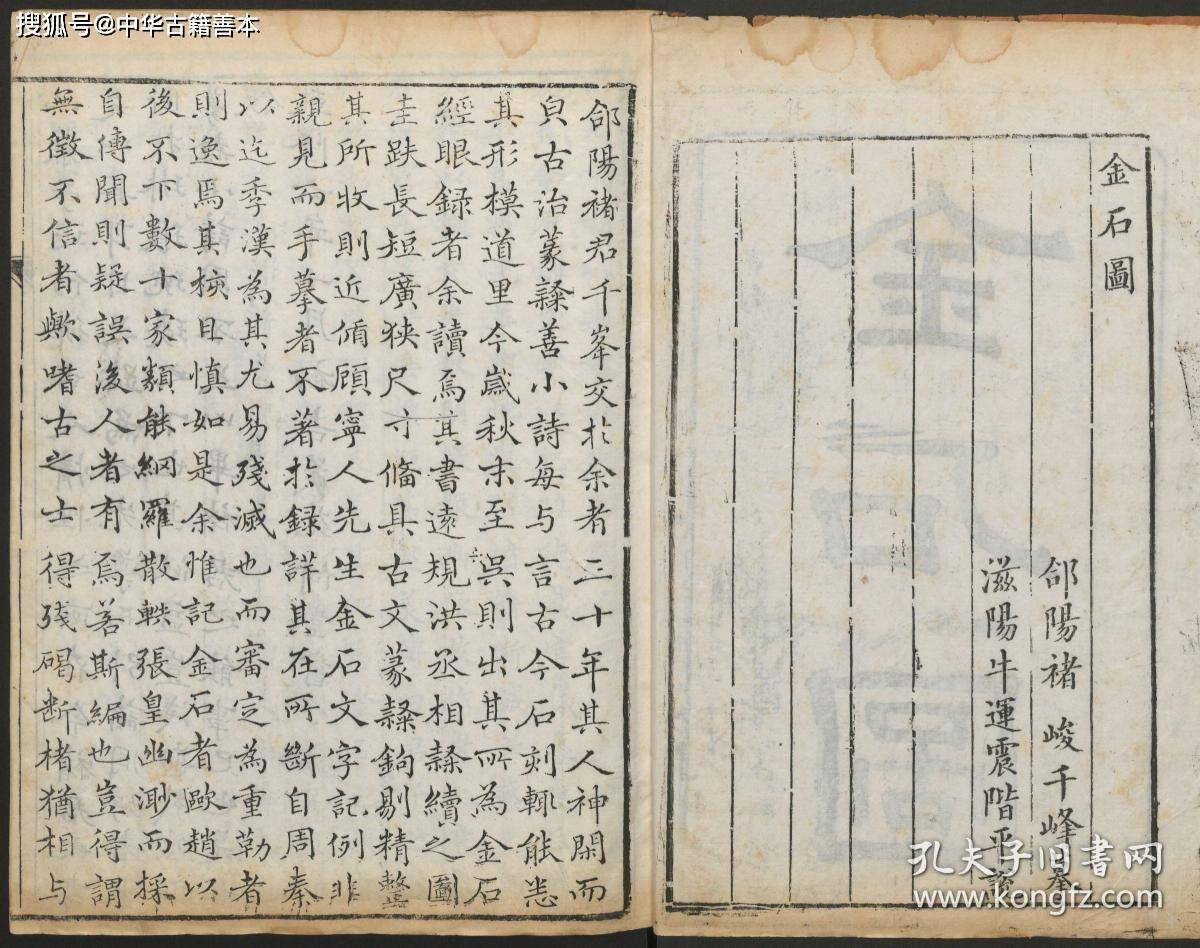 搜狐号@中华古籍善本
金石圖
郃陽褚峻千峰摹
滋陽牛運震階平
郃陽褚君千峯交於余者三十年其人神閑而
㒵古治篆隸善小詩每与言古今石刻輒能悉
其形模道里今歲秋末至吳則出其所為金石
經眼録者余讀焉其書遠規洪丞相隸續之圖
圭趺長短廣狹尺寸偹具古文篆隸鉤剔精整
其所收則近偱顧寧人先生金石文字記例非
親見而手摹者不著於録詳其在所斷自周秦
以迄季漢為其尤易殘滅也而審定為重勒者
則逸焉其核且慎如是余惟記金石者歐趙以
後不下數十家類能網羅散軼張皇幽渺而採
自傳聞則疑誤後人者有焉若斯編也豈得謂
無徵不信者歟嗜古之士得殘碣断楮猶相与
孔夫子旧书网
www.kongfz.com